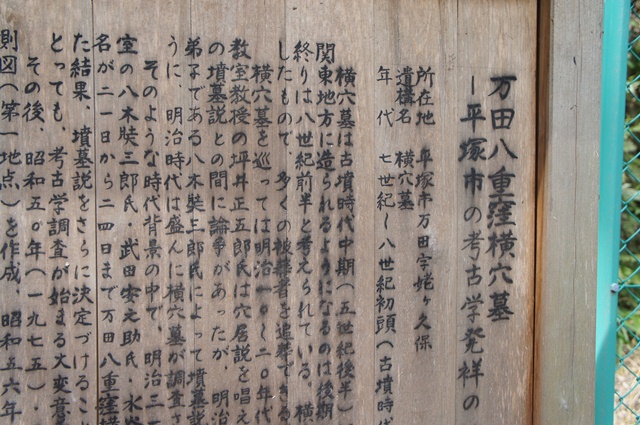 万田八重窪横穴墓
ー平塚市の考古学発祥の
所在地 平塚市万田字姥ヶ久保
遺構名 横穴墓
年代 七世紀〜八世紀初頭(古墳時代
横穴墓は古墳時代中期(五世紀後半)
関東地方に造られるようになるのは後期
終りは八世紀前半と考えられている。横
したもので、多くの被葬者を追葬できる
横穴墓を巡っては明治一〇〜二〇年代
教室教授の坪井正五郎氏は穴居説を唱え
の墳墓説との間に論争があったが、明治
弟子である八木奘三郎氏によって墳墓説
うに、明治時代は盛んに横穴墓が調査さ
そのような時代背景の中で、明治三
室の八木奘三郎氏・武田安之助氏・水
名が二一日から二四日まで万田八重窪横
た結果、墳墓説をさらに決定づけること
とっても、考古学調査が始まる大変意
その後、昭和五〇年(一九七五)・
測図(第一地点)を作成、昭和五六年